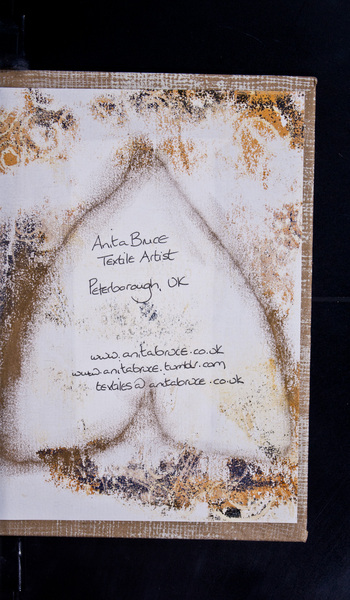 Anita Bruce
Textile Artist
Peterborough, UK
www.anitabruce.co.uk
www.anitabruce.tumblr.com
textiles@anitabruce.co.uk